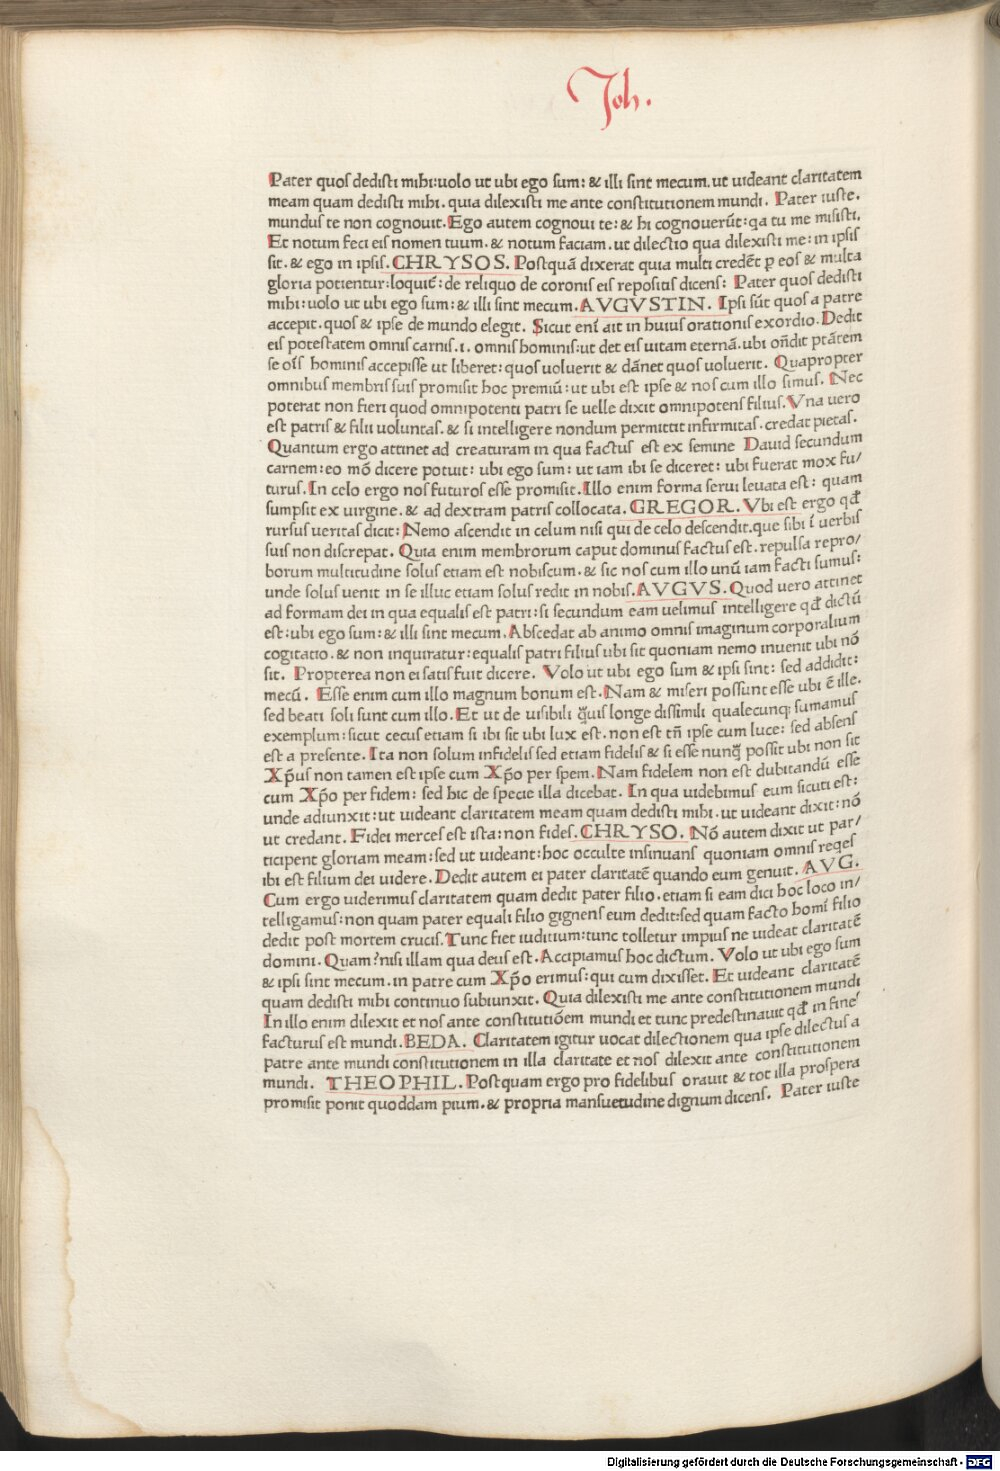 Joh.
Pater quos dedisti mihi:uolo ut ubi ego sum: & illi sint mecum.ut uideant claritatem
meam quam dedisti mihi. quia dilexisti me ante constitutionem mundi. Pater iuste.
mundus te non cognouit. Ego autem cognoui te: & hi cognouerūt: qa tu me misisti.
Et notum feci eis nomen tuum. & notum faciam. ut dilectio qua dilexisti me: in ipsis
sit. & ego in ipsis. CHRYSOS. Postquā dixerat quia multi credēt p̱ eos & multa
gloria potientur: loquit̃: de reliquo de coronis eis repositis dicens: Pater quos dedisti
mihi: uolo ut ubi ego sum: & illi sint mecum. AVGVSTIN. Ipsi sūt quos a patre
accepit. quos & ipse de mundo elegit. Sicut eni̅ ait in huius orationis exordio. Dedit
eis potestatem omnis carnis. i. omnis hominis: ut det eis uitam eternā. ubi on̄dit ptātem
se oi̅s hominis accepisse ut liberet: quos uoluerit & dānet quos uoluerit. Quapropter
omnibus membris suis promisit hoc premiū: ut ubi est ipse & nos cum illo simus. Nec
poterat non fieri quod omnipotenti patri se uelle dixit omnipotens filius. Vna uero
est patris & filii uoluntas. & si intelligere nondum permittit infirmitas. credat pietas.
Quantum ergo attinet ad creaturam in qua factus est ex semine Dauid secundum
carnem: eo mō dicere potuit: ubi ego sum: ut iam ibi se diceret: ubi fuerat mox fu/
turus. In celo ergo nos futuros esse promisit. Illo enim forma serui leuata est: quam
sumpsit ex uirgine. & ad dextram patris collocata. GREGOR. Vbi est ergo qđ
rursus ueritas dicit: Nemo ascendit in celum nisi qui de celo descendit. que sibi i̅ uerbis
suis non discrepat. Quia enim membrorum caput dominus factus est. repulsa repro/
borum multitudine solus etiam est nobiscum. & sic nos cum illo unū iam facti sumus:
unde solus uenit in se illuc etiam solus redit in nobis. AVGVS. Quod uero attinet
ad formam dei in qua equalis est patri: si secundum eam uelimus intelligere qđ dictū
est: ubi ego sum: & illi sint mecum. Abscedat ab animo omnis imaginum corporalium
cogitatio. & non inquiratur: equalis patri filius ubi sit quoniam nemo inuenit ubi nō
sit. Propterea non ei satis fuit dicere. Volo ut ubi ego sum & ipsi sint: sed addidit:
mecū. Esse enim cum illo magnum bonum est. Nam & miseri possunt esse ubi ē ille.
sed beati soli sunt cum illo. Et ut de uisibili q̃uis longe dissimili qualecunq; sumamus
exemplum: sicut cecus etiam si ibi sit ubi lux est. non est tn̄ ipse cum luce: sed absens
est a presente. Ita non solum infidelis sed etiam fidelis & si esse nunq̃ possit ubi non sit
Xp̄us non tamen est ipse cum Xp̄o per spem. Nam fidelem non est dubitandū esse
cum Xp̄o per fidem: sed hic de specie illa dicebat. In qua uidebimus eum sicuti est:
unde adiunxit: ut uideant claritatem meam quam dedisti mihi. ut uideant dixit: nō
ut credant. Fidei merces est ista: non fides. CHRYSO. Nō autem dixit ut par/
ticipent gloriam meam: sed ut uideant: hoc occulte insinuans quoniam omnis reqes
ibi est filium dei uidere. Dedit autem ei pater claritatē quando eum genuit. AVG.
Cum ergo uiderimus claritatem quam dedit pater filio. etiam si eam dici hoc loco in/
telligamus: non quam pater equali filio gignens eum dedit: sed quam facto homi̅ filio
dedit post mortem crucis. Tunc fiet iuditium: tunc tolletur impius ne uideat claritatē
domini. Quam? nisi illam qua deus est. Accipiamus hoc dictum. Volo ut ubi ego sum
& ipsi sint mecum. in patre cum Xp̄o erimus: qui cum dixisset. Et uideant claritatē
quam dedisti mihi continuo subiunxit. Quia dilexisti me ante constitutionem mundi
In illo enim dilexit et nos ante constitutiōem mundi et tunc predestinauit qđ in fine
facturus est mundi. BEDA. Claritatem igitur uocat dilectionem qua ipse dilectus a
patre ante mundi constitutionem in illa claritate et nos dilexit ante constitutionem
mundi. THEOPHIL. Postquam ergo pro fidelibus orauit & tot illa prospera
promisit ponit quoddam pium. & propria mansuetudine dignum dicens. Pater iuste
Digitalisierung gefördert durch die Deutsche Forschungsgemeinschaft - DFG